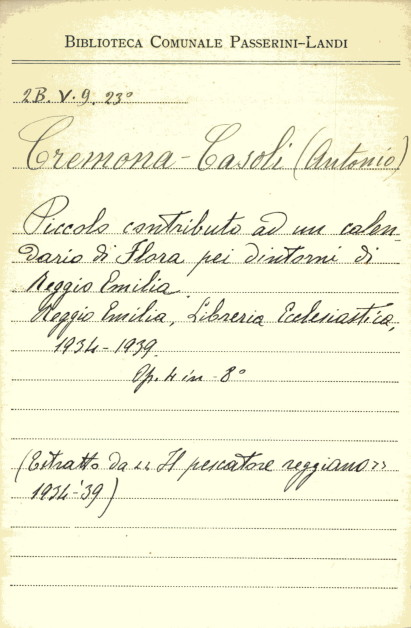 BIBLIOTECA COMUNALE PASSERINI-LANDI
2B. V. 9. 23°
Cremona-Casoli (Antonio)
Piccolo contributo ad un calen
dario di Flora pei dintorni di
Reggio Emilia.
Reggio Emilia, Libreria Ecclesiastica,
1934-1939.
Op. 4 in -8°
(Estratto da << Il pescatore reggiano >>
1934-'39)